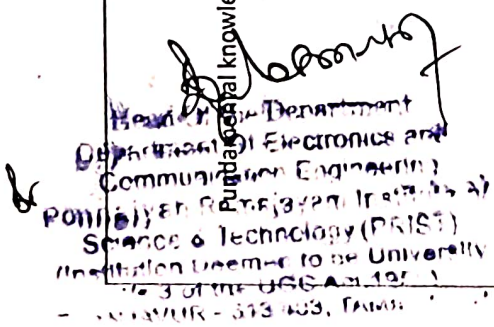 Head of the Department
Department of Electronics and
Communication Engineering
Ponnaiyah Ramajayam Institute of
Science & Technology (PRIST)
(Institution Deemed to be University
3 of the UGC Act 195
- 613 403,
Fundamental knowle